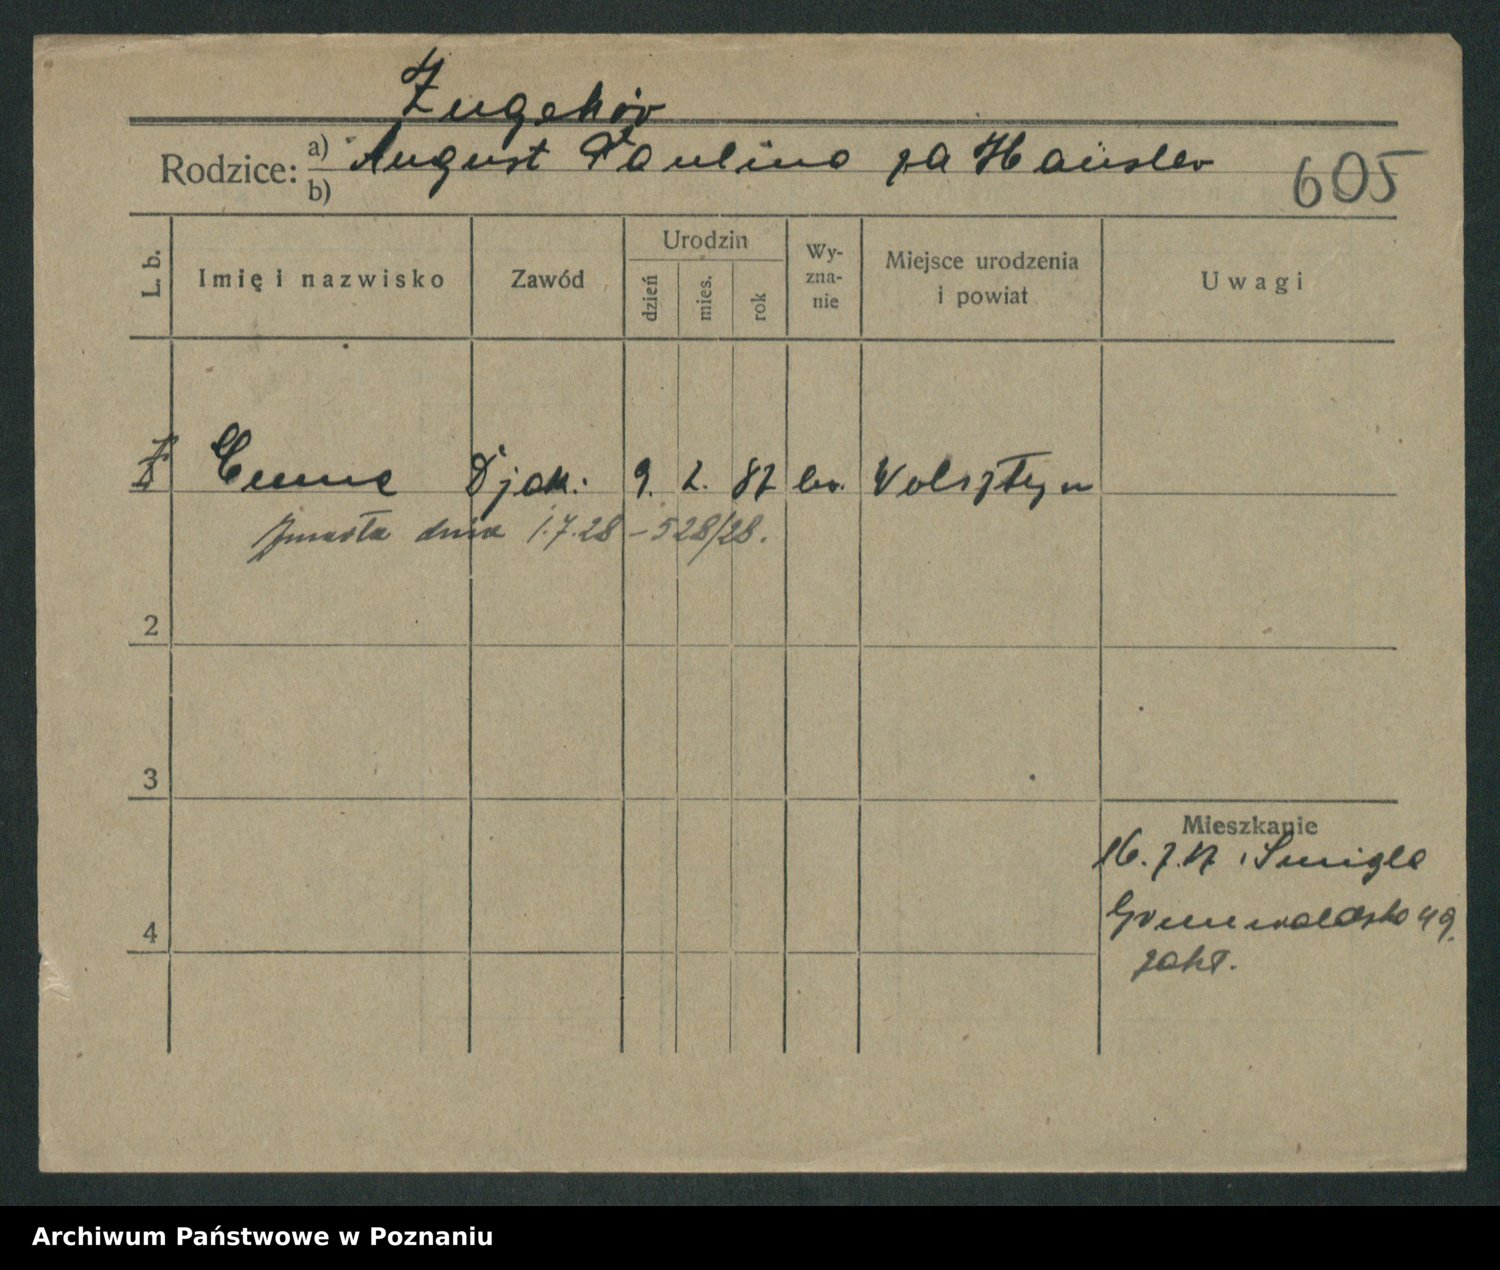 Zugehör
Rodzice: a) August Paulina za Häusler
b)
605
L. b.
Imię i nazwisko
Zawód
Urodzin
dzień
mies.
rok
Wy-
zna-
nie
Miejsce urodzenia
i powiat
Uwagi
Emma Djak. 9. 2. 87 ev. Wolsztyn
zmarła dnia 1.7.28 – 528/28.
2
3
4
Mieszkanie
16.7.17 Śmigla
Grunwaldzka 49.
zakł.
Archiwum Państwowe w Poznaniu